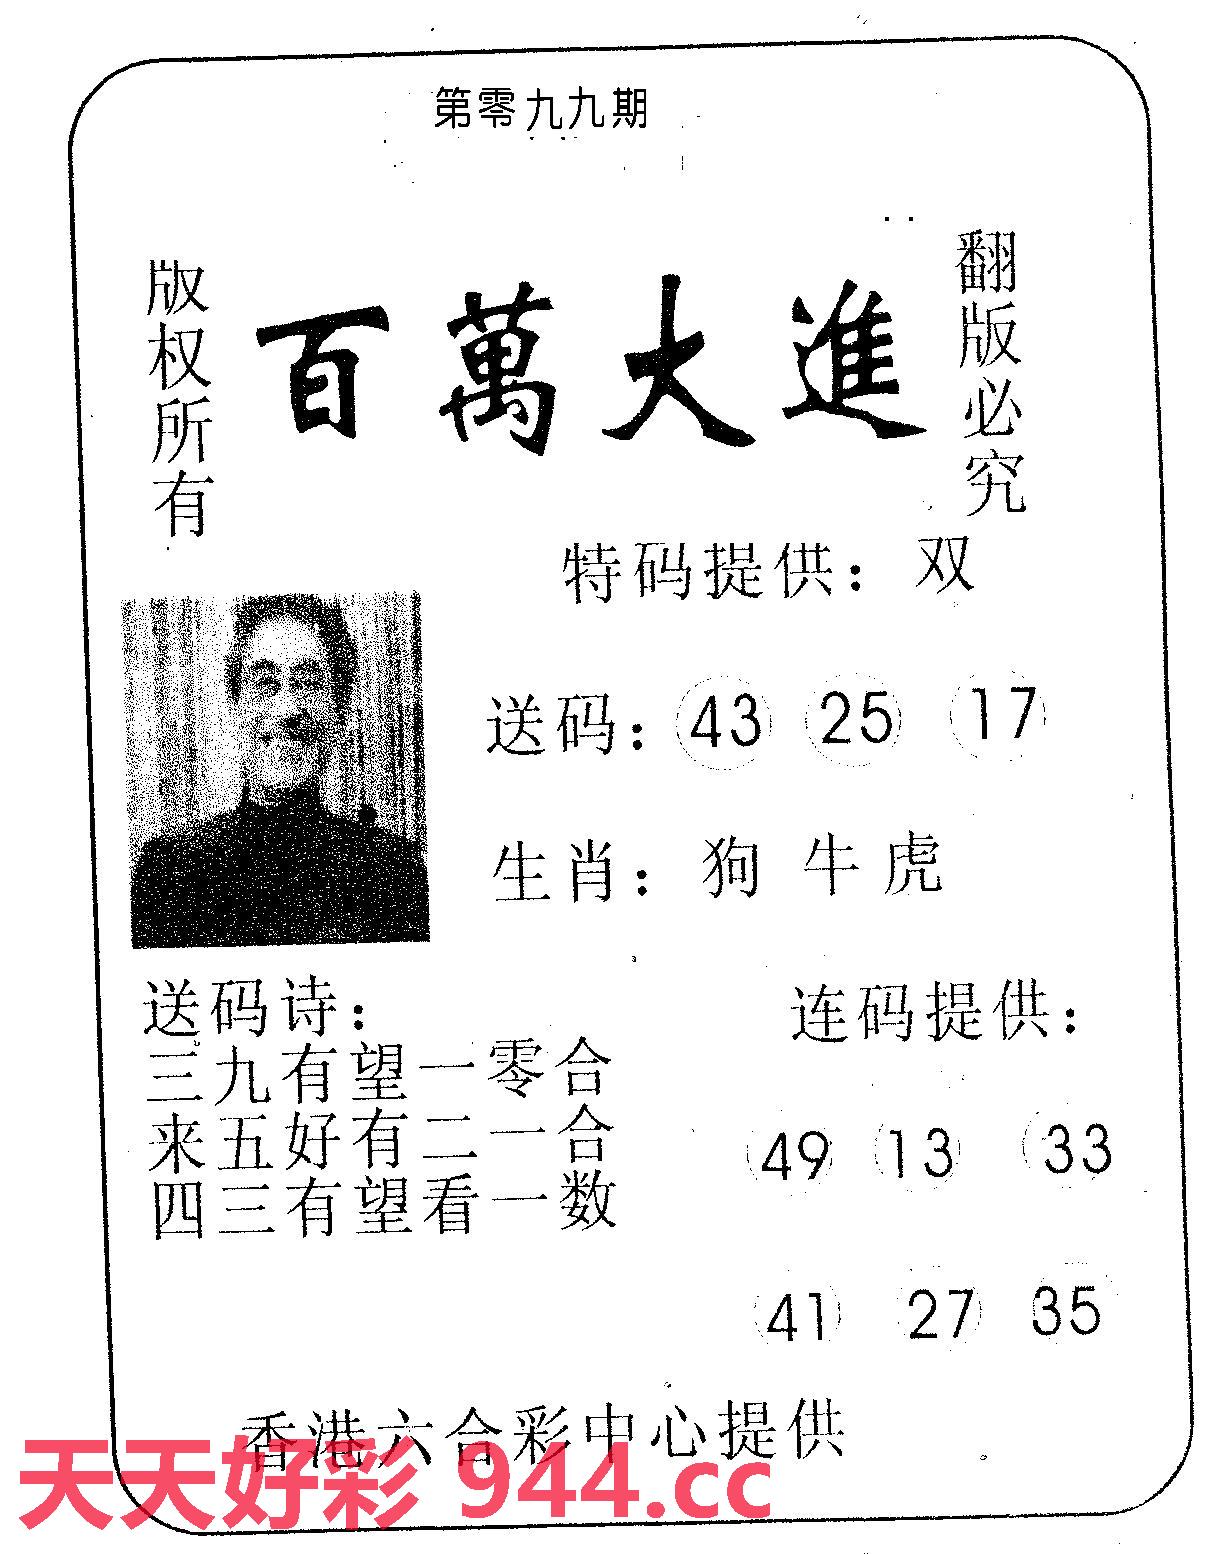 第零九九期
版权所有
百萬大進
翻版必究
特码提供：双
送码：43 25 17
生肖：狗 牛 虎
送码诗：
三九有望一零合
来五好有二一合
四三有望看一数
连码提供：
49 13 33
41 27 35
香港六合彩中心提供
天天好彩 944.cc